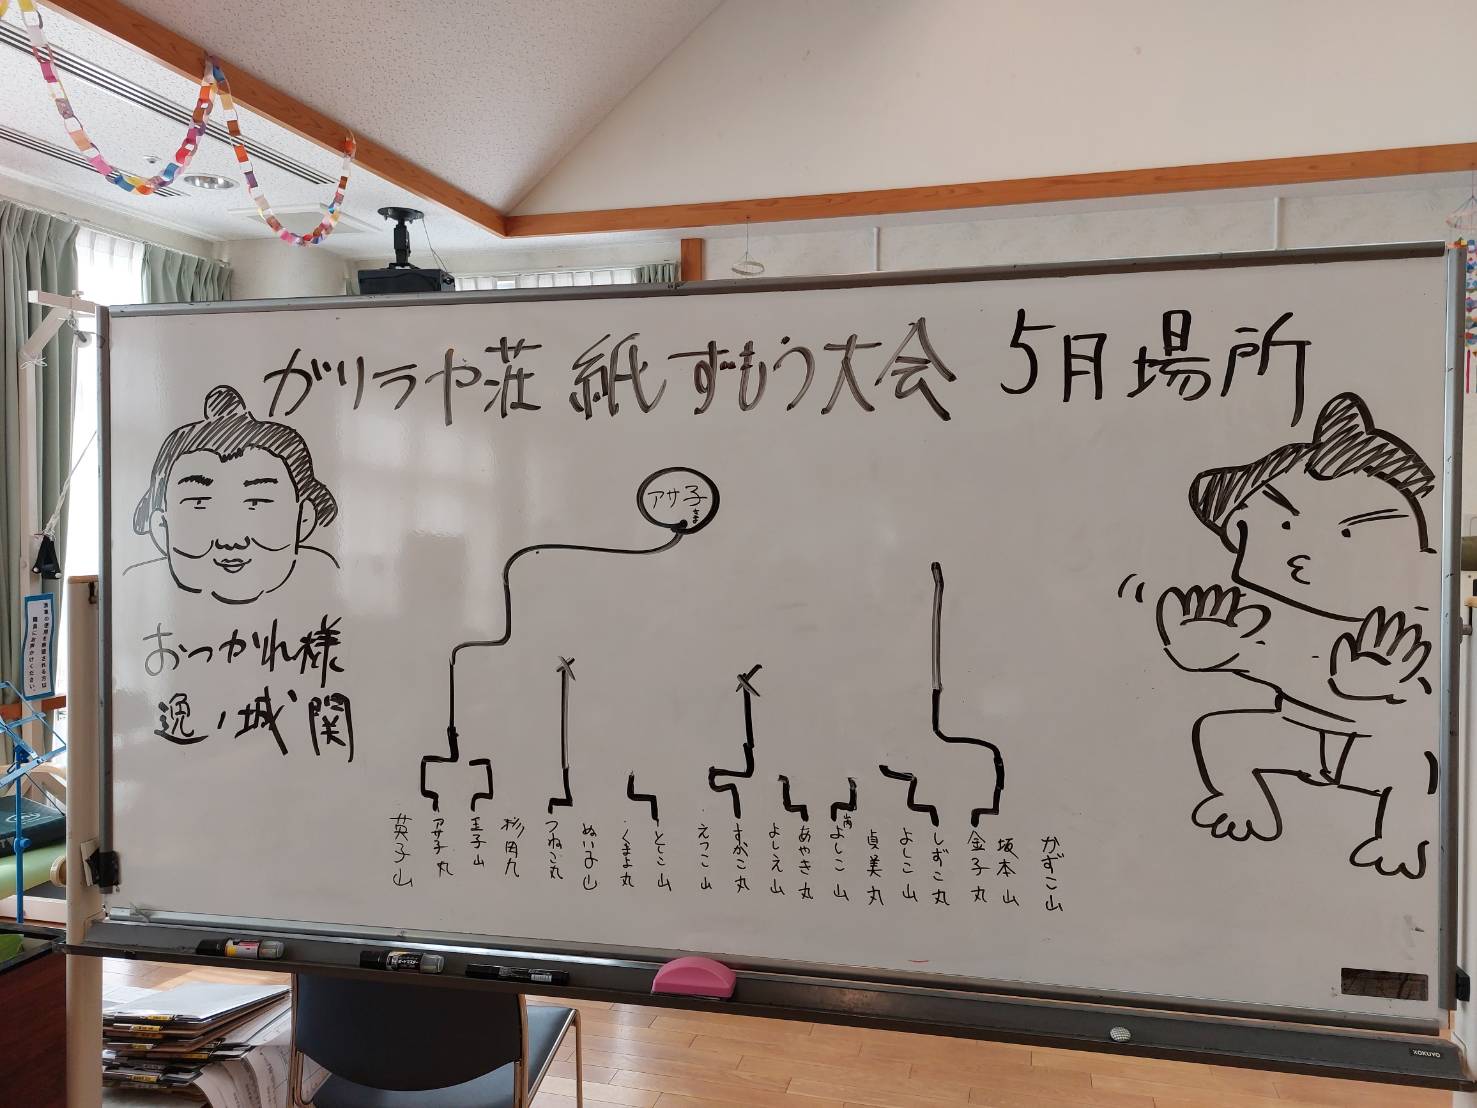 ガリラヤ荘 紙ずもう大会 5月場所
アサ子
さま
おつかれ様
逸ノ城関
英子山
アサ子丸
王子山
杉岡丸
つねこ丸
ぬい子山
くまよ丸
としこ山
えつこ山
すがこ丸
よしえ山
あやき丸
よしこ山
貞美丸
よしこ山
しずこ丸
金子丸
坂本山
かずこ山
KOKUYO